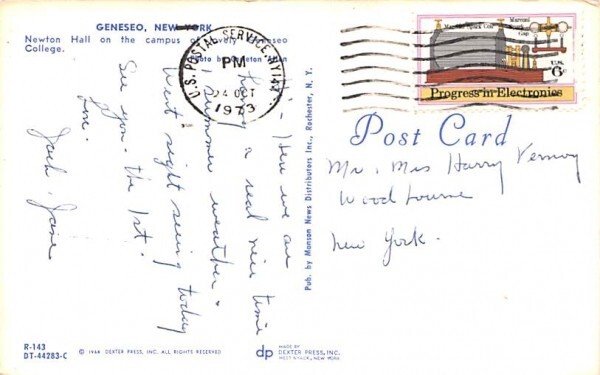 GENESEO, NEW YORK
Newton Hall on the campus of lovely Geneseo
College.
Photo by Carleton
U.S. POSTAL SERVICE, NY
PM
24 OCT
1973
Marconi's Spark Coil
Marconi
Spark
Gap
U.S.
6c
Progress in Electronics
Post Card
Hi - Here we are
having a real nice time
summer weather.
Went sight seeing today
See you - the 1st.
Love.
Jack, Jane
Mr. Mrs Harry Vernoy
Woodbourne
New York.
Pub. by Manson News Distributors Inc., Rochester, N. Y.
R-143
DT-44283-C
© 1964 DEXTER PRESS, INC. ALL RIGHTS RESERVED
dp
MADE BY
DEXTER PRESS, INC.
WEST NYACK, NEW YORK